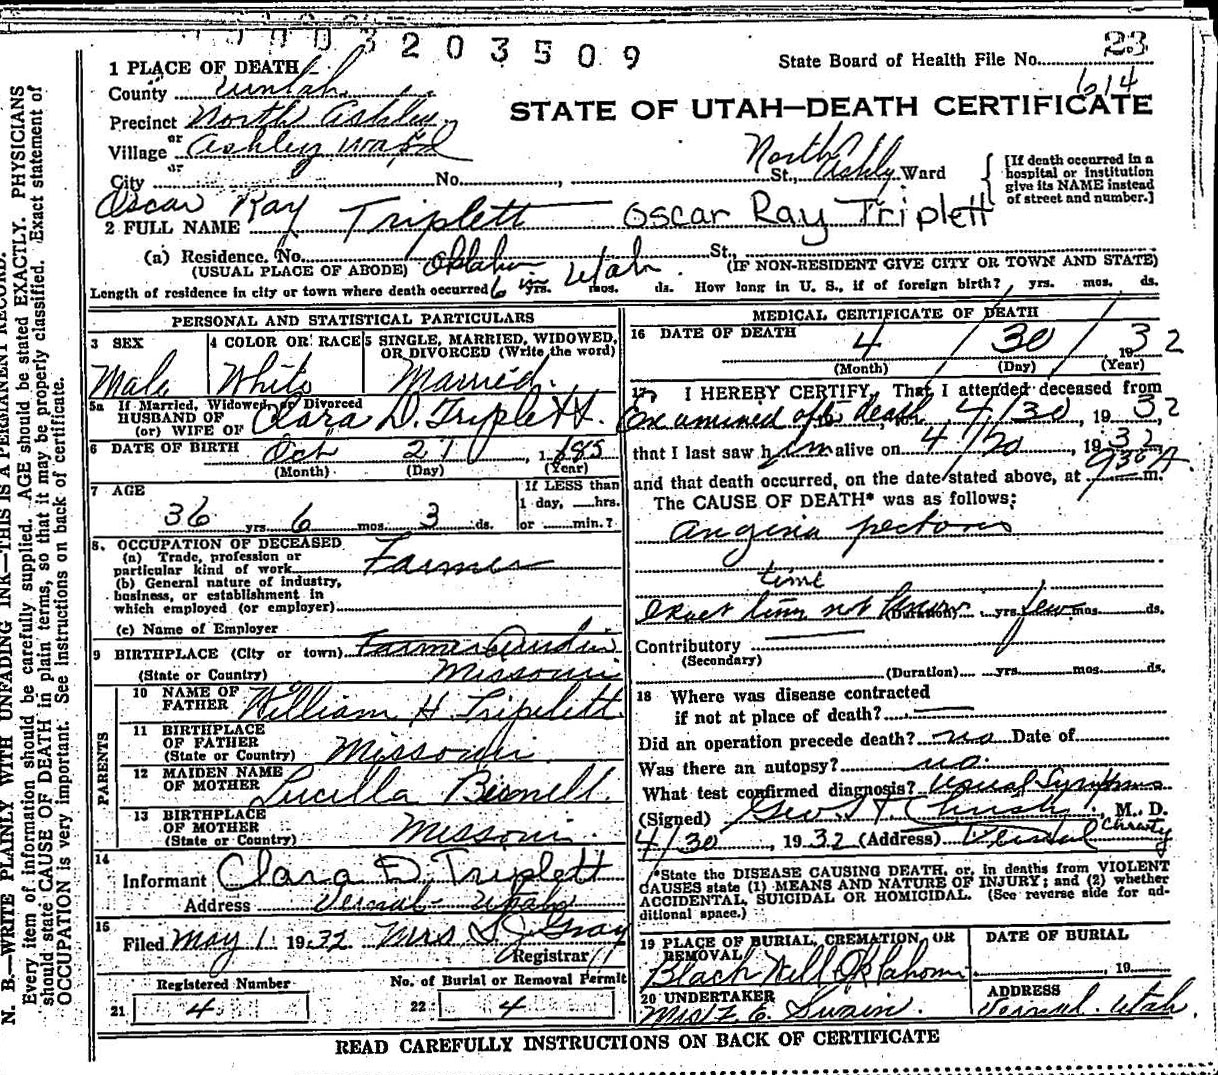 0003203509
State Board of Health File No. 23
614
1 PLACE OF DEATH
STATE OF UTAH—DEATH CERTIFICATE
County Uintah
Precinct North Ashley
Village or Ashley Ward
or
City No. St., North Ashly Ward
[If death occurred in a hospital or institution give its NAME instead of street and number.]
2 FULL NAME Oscar Ray Triplett Oscar Ray Triplett
(a) Residence. No. St.
(USUAL PLACE OF ABODE) Utah (IF NON-RESIDENT GIVE CITY OR TOWN AND STATE)
Length of residence in city or town where death occurred 6 yrs. mos. ds. How long in U. S., if of foreign birth? yrs. mos. ds.
PERSONAL AND STATISTICAL PARTICULARS
3 SEX
Male
4 COLOR OR RACE
White
5 SINGLE, MARRIED, WIDOWED, OR DIVORCED (Write the word)
Married.
5a If Married, Widowed, or Divorced
HUSBAND OF
(or) WIFE OF Clara D. Triplett.
6 DATE OF BIRTH Oct 27, 1895
(Month) (Day) (Year)
7 AGE
36 yrs 6 mos. 3 ds.
If LESS than
1 day, hrs.
or min.?
8. OCCUPATION OF DECEASED
(a) Trade, profession or
particular kind of work Farmer
(b) General nature of industry,
business, or establishment in
which employed (or employer)
(c) Name of Employer
9 BIRTHPLACE (City or town)
(State or Country) Missouri
PARENTS
10 NAME OF
FATHER William H Triplett
11 BIRTHPLACE
OF FATHER
(State or Country) Missouri
12 MAIDEN NAME
OF MOTHER Lucilla
13 BIRTHPLACE
OF MOTHER
(State or Country) Missouri
14
Informant Clara D. Triplett
Address Vernal Utah
15
Filed May 1 1932 Mrs S J Gray
Registrar
Registered Number
21 4
No. of Burial or Removal Permit
22 4
MEDICAL CERTIFICATE OF DEATH
16 DATE OF DEATH
4 / 30 / 1932
(Month) (Day) (Year)
17 I HEREBY CERTIFY, That I attended deceased from
Examined death 4/30, 1932
that I last saw him alive on 4/20, 1932
and that death occurred, on the date stated above, at 930 A. m.
The CAUSE OF DEATH* was as follows:
angina pectoris
time
Exact time not known (Duration) yrs. few mos. ds.
Contributory
(Secondary)
(Duration) yrs. mos. ds.
18 Where was disease contracted
if not at place of death?
Did an operation precede death? no Date of
Was there an autopsy? no.
What test confirmed diagnosis? Usual Symptoms
(Signed) Geo. H. Christy, M. D.
Christy
4/30, 1932 (Address) Vernal
*State the DISEASE CAUSING DEATH, or, in deaths from VIOLENT
CAUSES state (1) MEANS AND NATURE OF INJURY; and (2) whether
ACCIDENTAL, SUICIDAL OR HOMICIDAL. (See reverse side for additional space.)
19 PLACE OF BURIAL, CREMATION, OR
REMOVAL
Oklahoma
DATE OF BURIAL
, 19
20 UNDERTAKER
E. Swain.
ADDRESS
Vernal. Utah.
READ CAREFULLY INSTRUCTIONS ON BACK OF CERTIFICATE
N. B.—WRITE PLAINLY WITH UNFADING INK—THIS IS A PERMANENT RECORD.
Every item of information should be carefully supplied. AGE should be stated EXACTLY. PHYSICIANS
should state CAUSE OF DEATH in plain terms, so that it may be properly classified. Exact statement of
OCCUPATION is very important. See instructions on back of certificate.